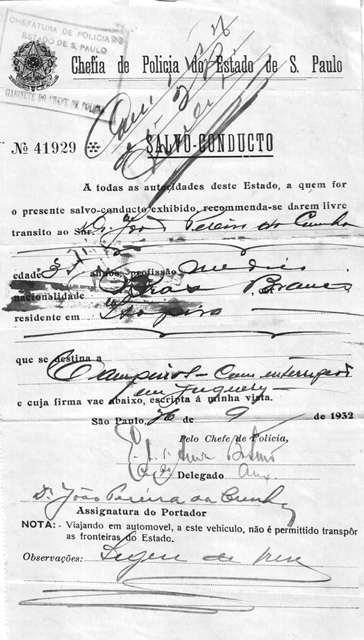 CHEFATURA DE POLICIA
ESTADO DE S. PAULO
GABINETE DO CHEFE DE POLICIA
Chefia de Policia do Estado de S. Paulo
No 41929
SALVO-CONDUCTO
A todas as autoridades deste Estado, a quem for
o presente salvo-conducto exhibido, recommenda-se darem livre
transito ao Snr. Dr. João Pereira da Cunha
edade 35 annos, profissão Medico
nacionalidade Bras. Branca
residente em
que se destina a
Campinas - Com interrupção
em Juquery
e cuja firma vae abaixo, escripta á minha vista.
São Paulo, 16 9 de 1932
Pelo Chefe de Policia,
Delegado Aux
Dr. João Pereira da Cunha
Assignatura do Portador
NOTA: - Viajando em automovel, a este vehiculo, não é permittido transpôr
as fronteiras do Estado.
Observações: Segue de trem